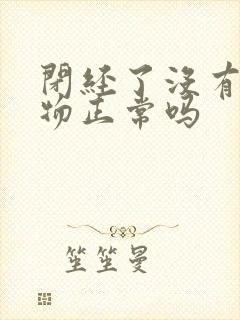 閉經了沒有
物正常嗎
笙笙曼